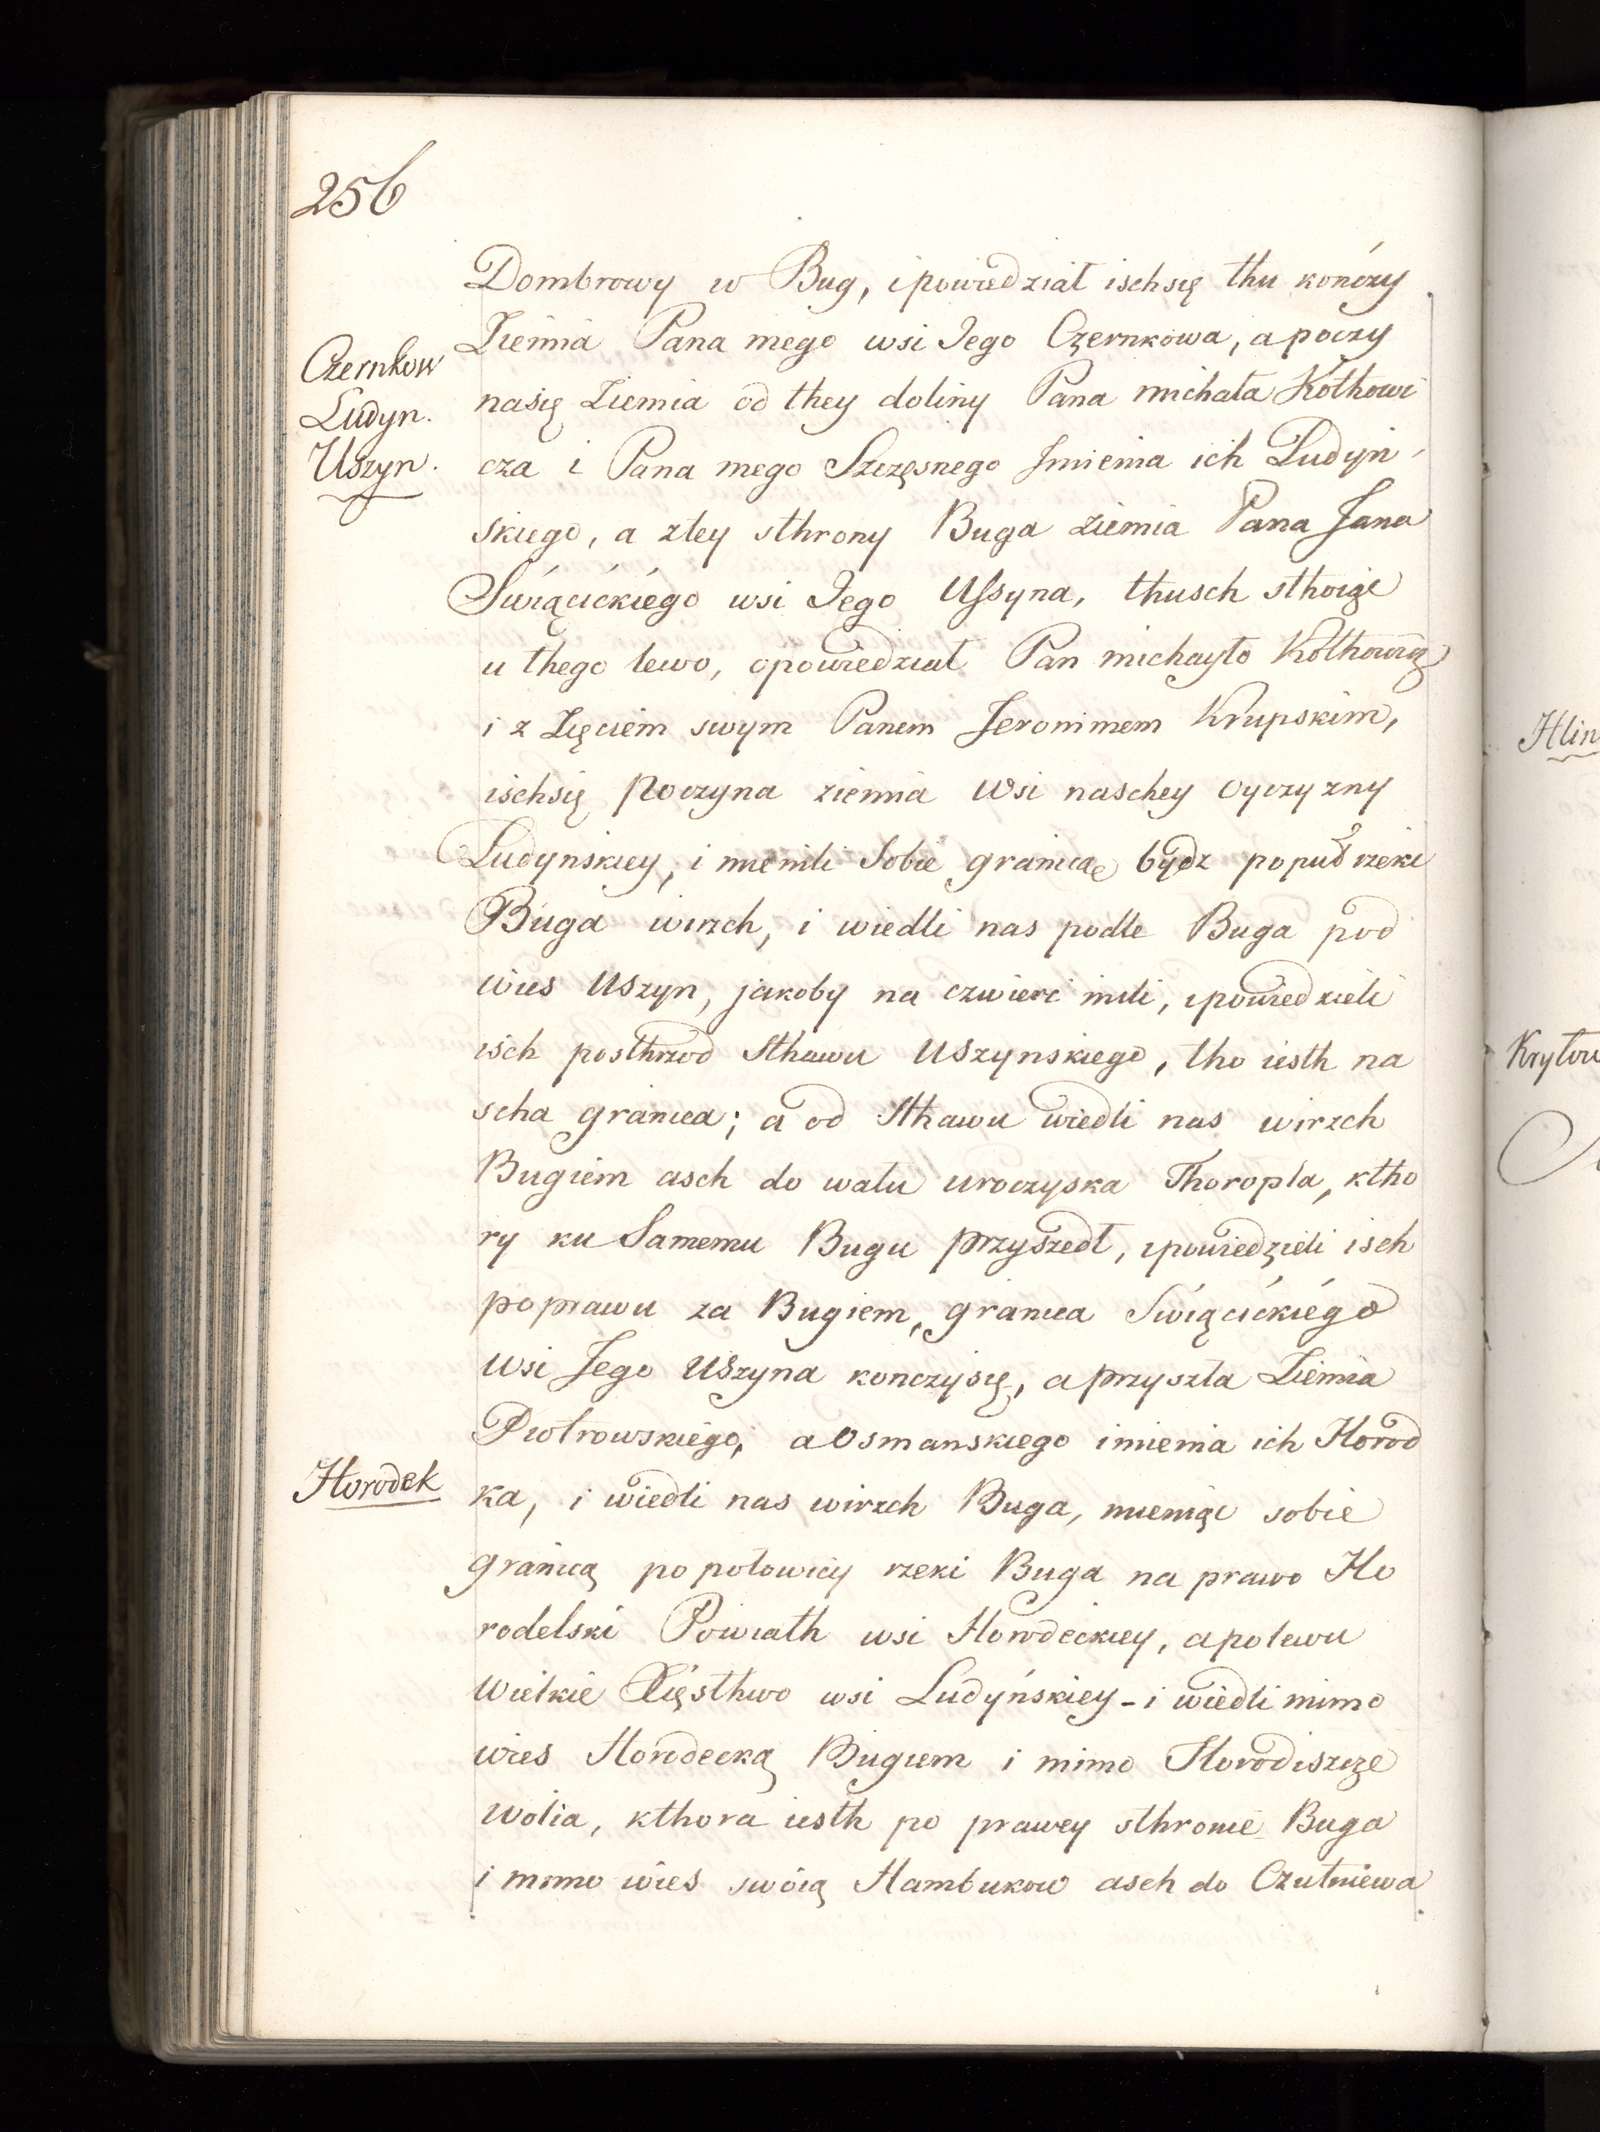 256
Dombrowy w Bug, ipowiedział ischsię thu kończy
Ziemia Pana mego wsi Jego Czernkowa, apoczy
Czernkow
Ludyn.
Uszyn.
nasię Ziemia od they doliny Pana michała Kołthowi
cza i Pana mego Szczęsnego Jmienia ich Ludyn
skiego, a ztey sthrony Buga ziemia Pana Jana
Swiącickiego wsi Jego Ussyna, thusch sthoiąc
u thego lewo, opowiedział Pan michayło Kołthowicz
i z Zięciem swym Panem Jeronimem Krupskim,
ischsię poczyna ziemia wsi naschey oyczyzny
Ludynskiey, i mienili Sobie granicae bydz popuł rzeki
Buga wirzch, i wiedli nas podle Buga pod
wies Uszyn, jakoby na czwierć mili, ipowiedzieli
isch posthrzod Sthawu Uszynskiego, tho iesth na
scha granica; a od Sthawu wiedli nas wirzch
Bugiem asch do wału uroczyska Thoropla, ktho
ry ku Samemu Bugu przyszedł, ipowiedzieli isch
poprawu za Bugiem, granica Swiącickiego
wsi Jego Uszyna konczysię, aprzyszła Ziemia
Piotrowskiego, aOsmanskiego imienia ich Horod
Horodek
ka, i wiedli nas wirzch Buga, mieniąc sobie
granicą popołowicy rzeki Buga na prawo Ho
rodelski Powiath wsi Horodeckiey, apolewu
Wielkie Xięsthwo wsi Ludyńskiey - i wiedli mimo
wies Horodecką Bugiem i mimo Horodiszcze
Wolia, kthora iesth po prawey sthronie Buga
i mimo wies swoią Hambukow asch do Czułniewa
Hlin
Kryłow